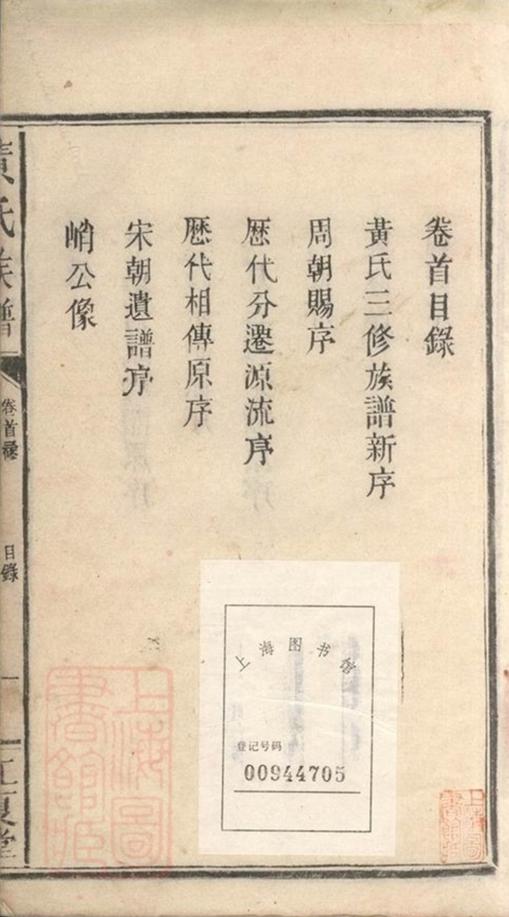 卷首目錄
黃氏三修族譜新序
周朝賜序
歷代分遷源流序
歷代相傳原序
宋朝遺譜序
峭公像
黃氏族譜
卷首
目錄
一
江夏堂
上海图书馆
登记号码
00944705
上海圖書館藏